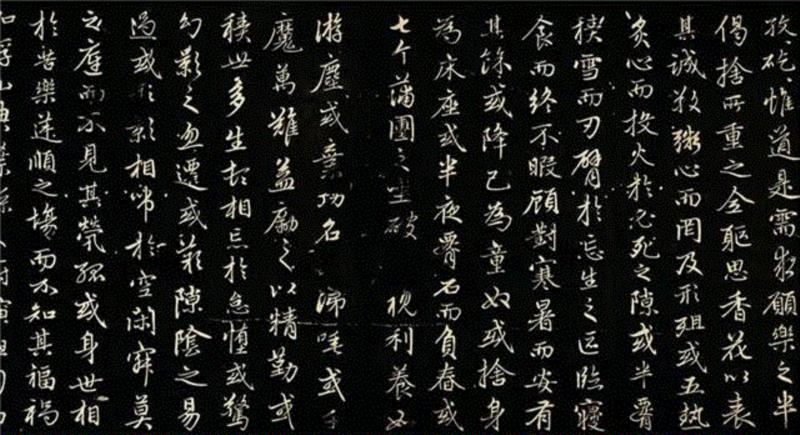 惟道是需願樂之半
偈捨所重之全軀思香花以表
其誠心而罔及形殂或五熱
炙心而投火於必死之隙或腰
積雪而刃臂於忘生之區臨寢
食而終不暇顧對寒暑而安有
其餘或降己為童奴或捨身
為床座或半夜腰石而負舂或
七个蒲團之坐破 視利養如
游塵或棄功名 涕唾或千
魔萬難益勵之以精勤或
積世多生相忘於怠惰或驚
幻影之忽遷或隙陰之易
過或形影相吊於空閑寂莫
之庭而不見其煢孤或身世相
於苦樂逆順之場而不知其福禍